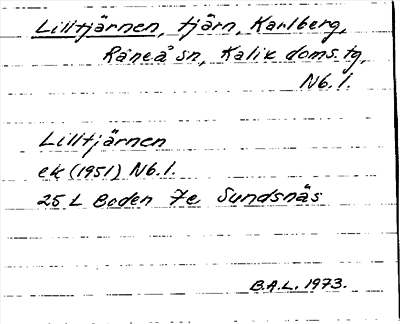 Lilltjärnen, tjärn, Karlberg,
Råneå sn, Kalix doms.tg,
Nb.l.
Lilltjärnen
ek (1951) Nb.l.
25 L Boden 7e Sundsnäs
B.A.L. 1973.